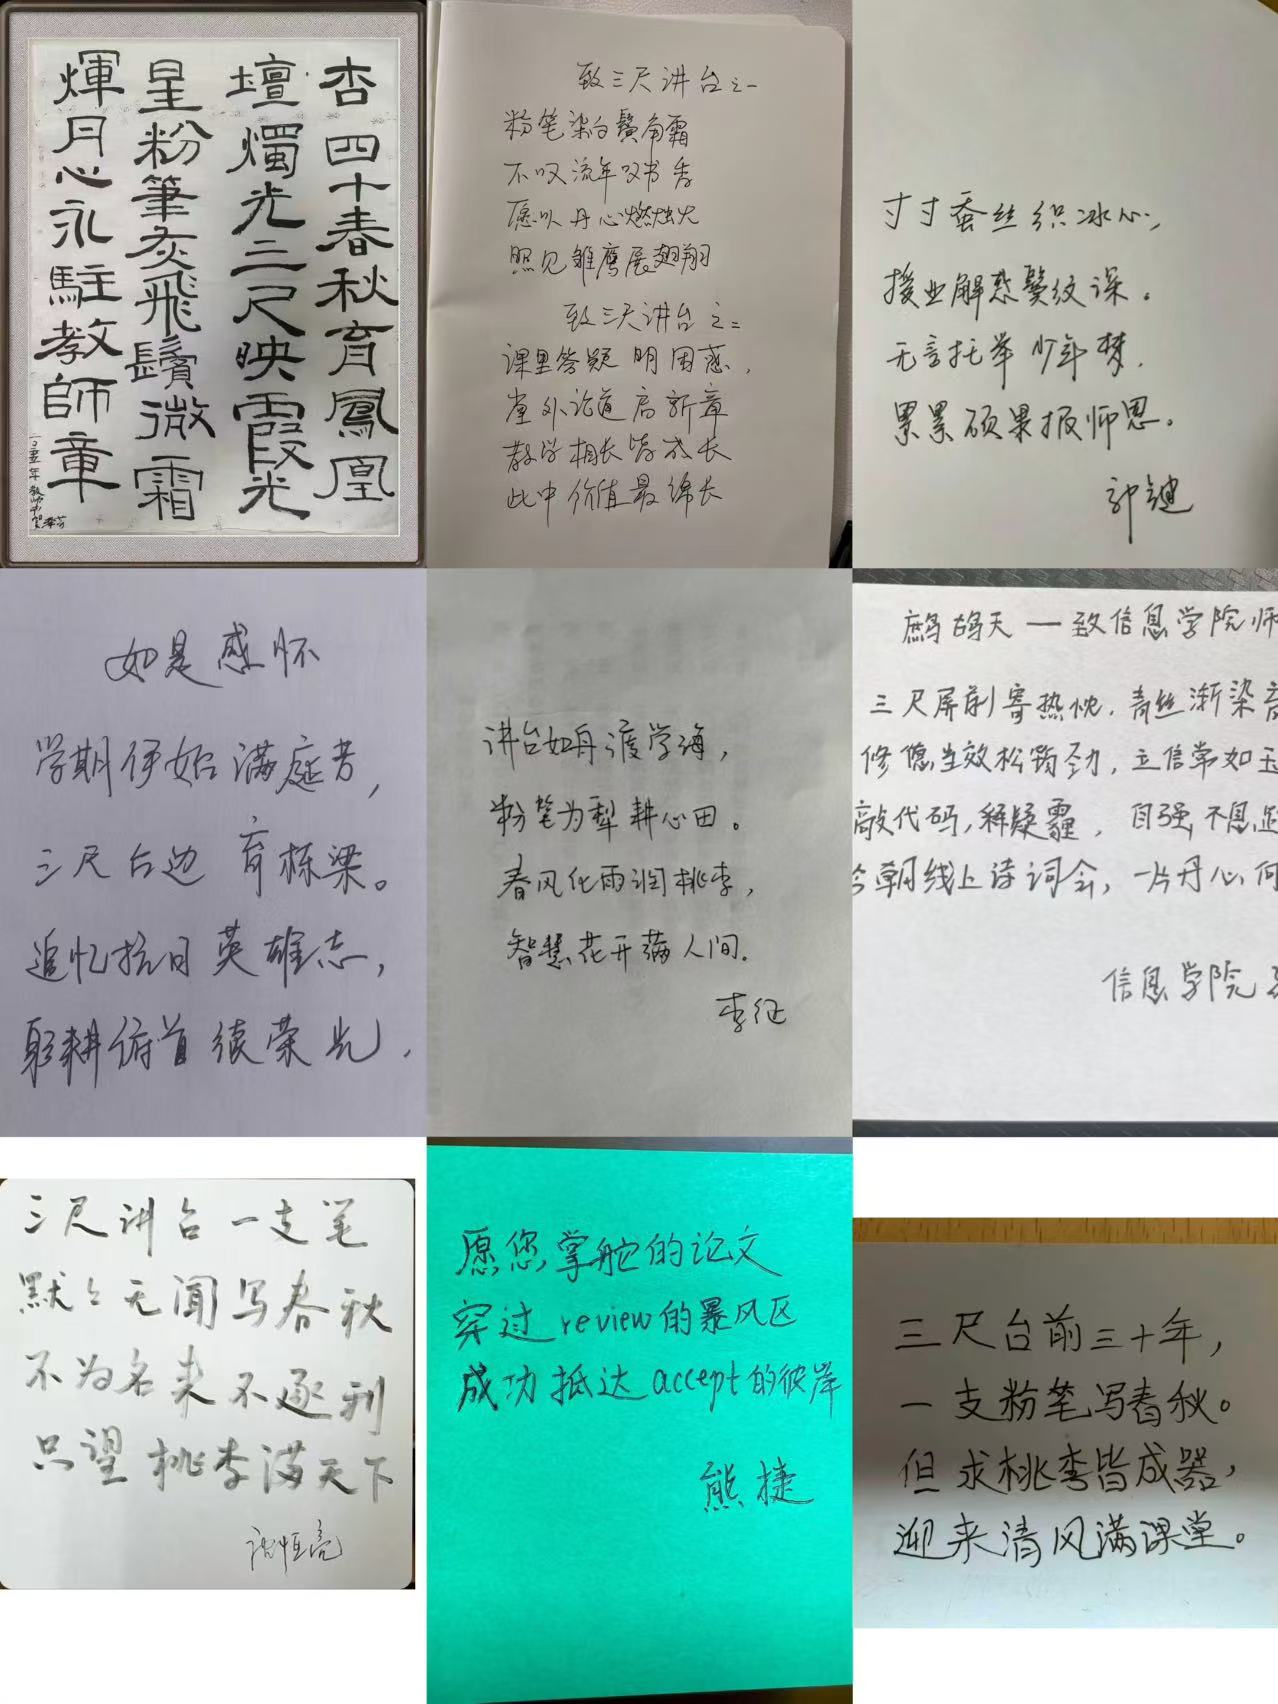 杏四十春秋育鳳凰
壇燭光三尺映霞光
星粉筆灰飛鬢微霜
輝月心永駐教師章
致三尺讲台之一
粉笔染白鬓角霜
不叹流年叹书香
愿以丹心燃烛火
照见雏鹰展翅翔
致三尺讲台之二
课里答疑明困惑,
堂外论道启新章
教学相长皆成长
此中价值最绵长
寸寸蚕丝织冰心,
授业解惑鬓纹深。
无言托举少年梦,
累累硕果报师恩。
郭键
如是感怀
学期伊始满庭芳,
三尺台边育栋梁。
追忆抗日英雄志,
躬耕俯首续荣光.
讲台如舟渡学海,
粉笔为犁耕心田。
春风化雨润桃李,
智慧花开满人间.
李征
鹧鸪天—致信息学院师
三尺屏前寄热忱,青丝渐染
修德当效松筠劲,立信常如玉
敲代码,释疑霾,自强不息
今朝线上诗词会,一片丹心何
信息学院
三尺讲台一支笔
默々无闻写春秋
不为名来不逐利
只望桃李满天下
沈恒亮
愿您掌舵的论文
穿过review的暴风区
成功抵达accept的彼岸
熊捷
三尺台前三十年,
一支粉笔写春秋。
但求桃李皆成器,
迎来清风满课堂。